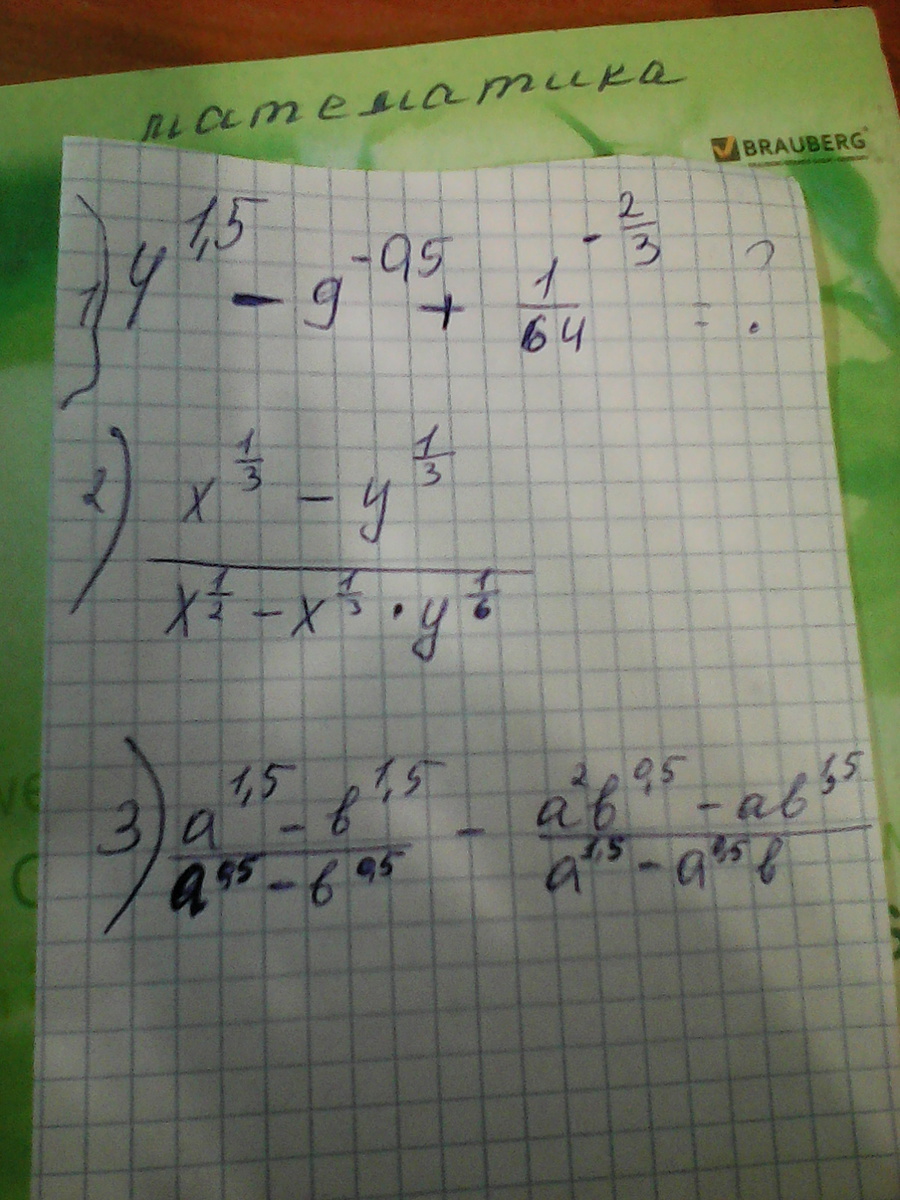 математика
BRAUBERG
1) 4^1,5 - 9^-0,5 + 1/64^-2/3 = ?
2) x^1/3 - y^1/3
x^1/2 - x^1/3 · y^1/6
3) a^1,5 - b^1,5 - a^2b^0,5 - ab^1,5
a^0,5 - b^0,5 a^1,5 - a^0,5b